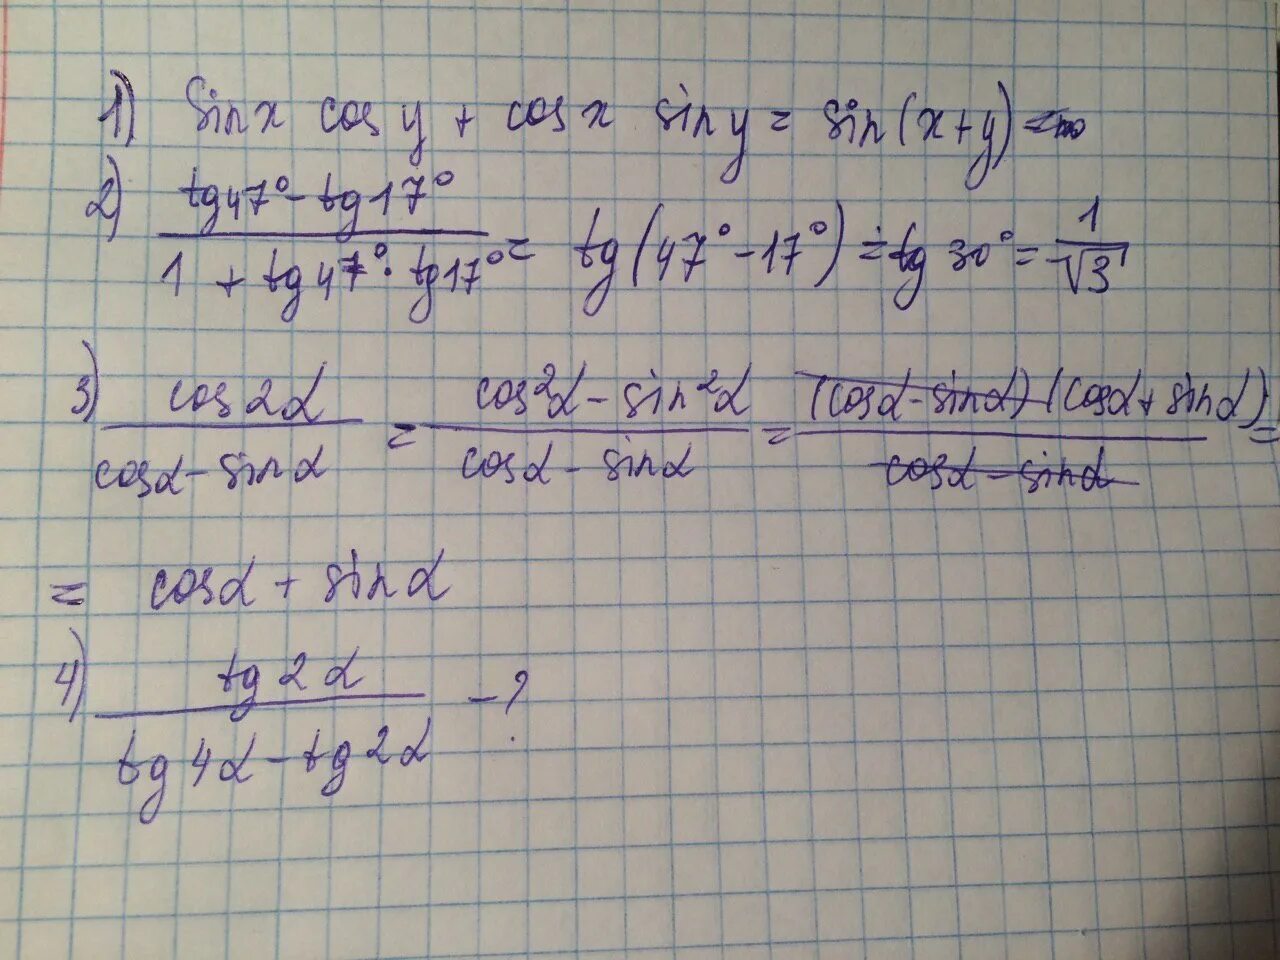 1) sin x cos y + cos x sin y = sin (x+y) =
2) (tg 47° - tg 17°) / (1 + tg 47° · tg 17°) = tg (47° - 17°) = tg 30° = 1/√3
3) cos 2α / (cos α - sin α) = (cos²α - sin²α) / (cos α - sin α) = (cos α - sin α) (cos α + sin α) / (cos α - sin α) =
= cos α + sin α
4) tg 2α / (tg 4α - tg 2α) - ?